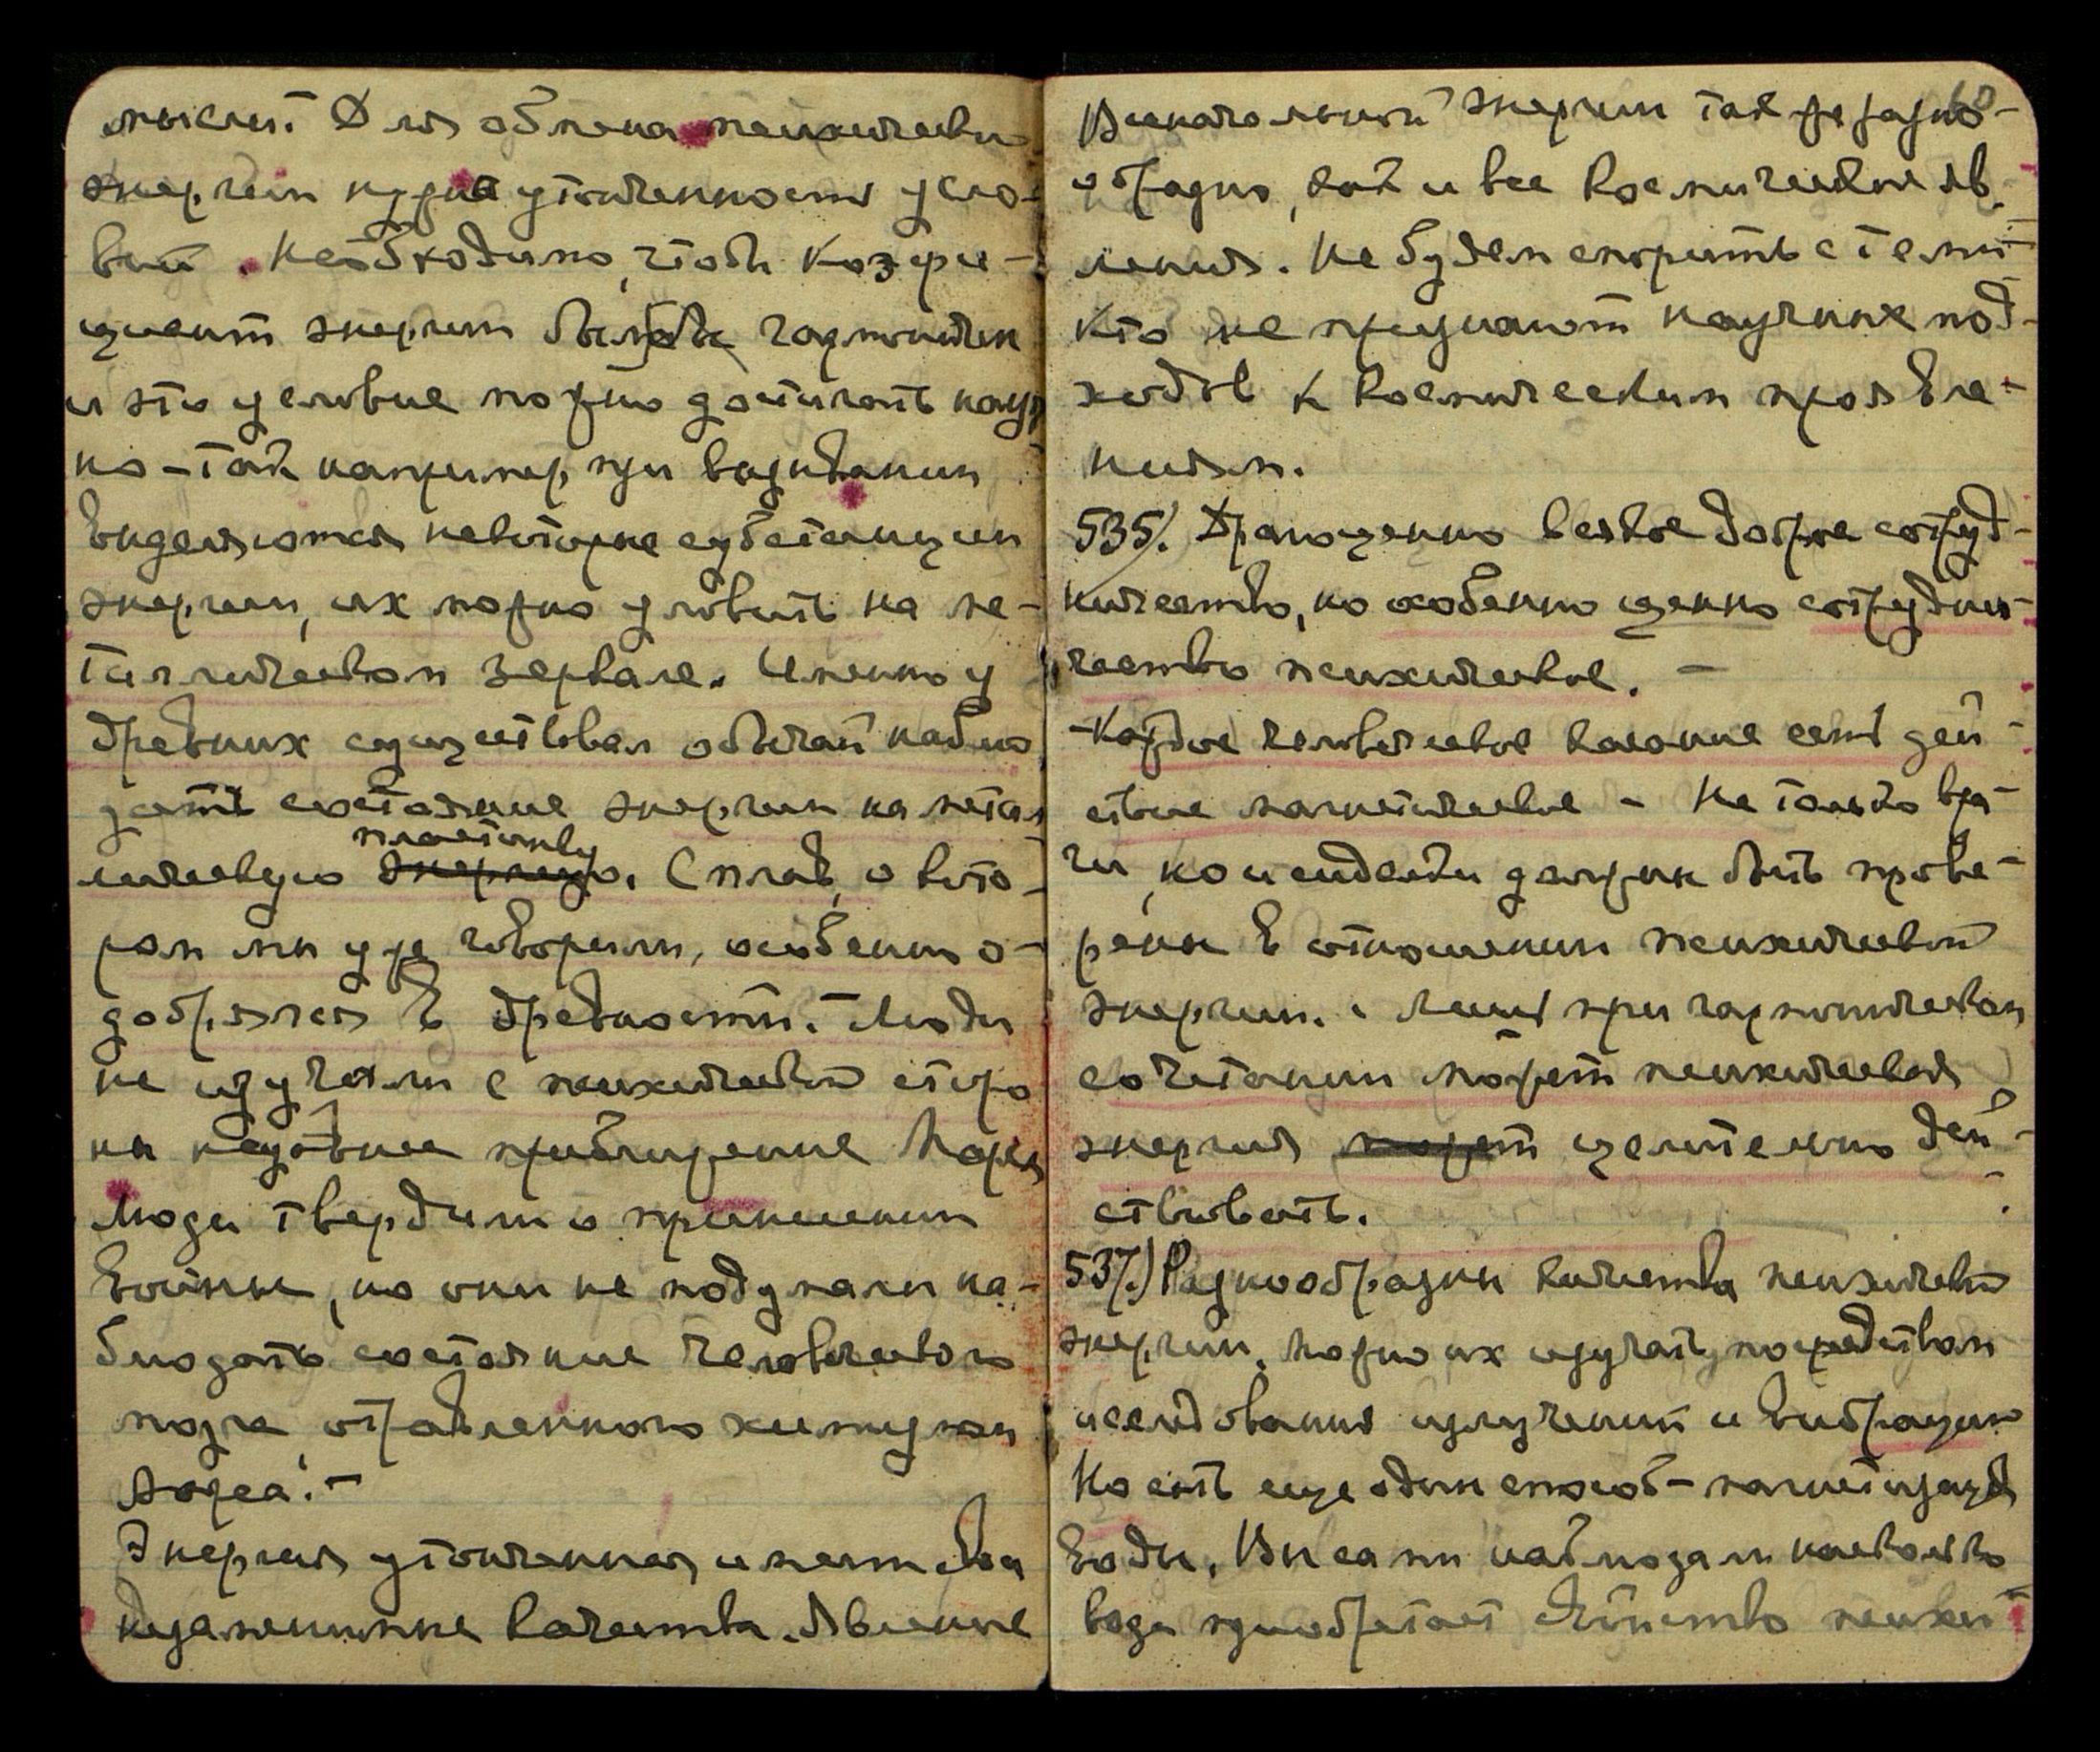 мысли. Для обмена психической
энергии нужна утонченность усло-
вий. Необходимо, чтобы коэфи-
циент энергии был бы гармоничен
и это условие можно достигать науч
но – так например, при вздыхании
выделяются некоторые субстанции
энергии, их можно уловить на ме-
таллическом зеркале. Именно у
древних существовал обычай наблю
дать состояние энергии на метал
лическую энергию. Сплав, о кото-
пластинку
ром мы уже говорили, особенно о-
добрялся в древности. Люди
не изучали с психической сторо
ны недавнее приближение Марса
Люди твердили о
войны, но они не подумали на-
блюдать состояние человеческого
мозга, отравленного химизмом
Марса. –
Энергия утонченная имеет свои
неизменные качества. Явление
Вселенской энергии так же разно-
образно, как и все космические яв-
ления. Не будем спорить с теми
кто не признают научных под-
ходов к космическим проявле-
ниям.
535). Драгоценно всякое доброе сотруд-
ничество, но особенно ценно сотрудни-
чество психическое. –
– Каждое человеческое касание есть дей-
ствие магнетическое – Не только вра-
чи, но и сиделки должны быть прове-
рены в отношении психической
энергии. Лишь при гармоническом
сочетании может психическая
энергия может целительно дей-
ствовать.
537.) Разнообразны качества психической
энергии. Можно их изучать посредством
исследования излучений и вибрации
Но есть еще один способ – магнетизация
воды. Вы сами наблюдали насколько
вода приобретает психи